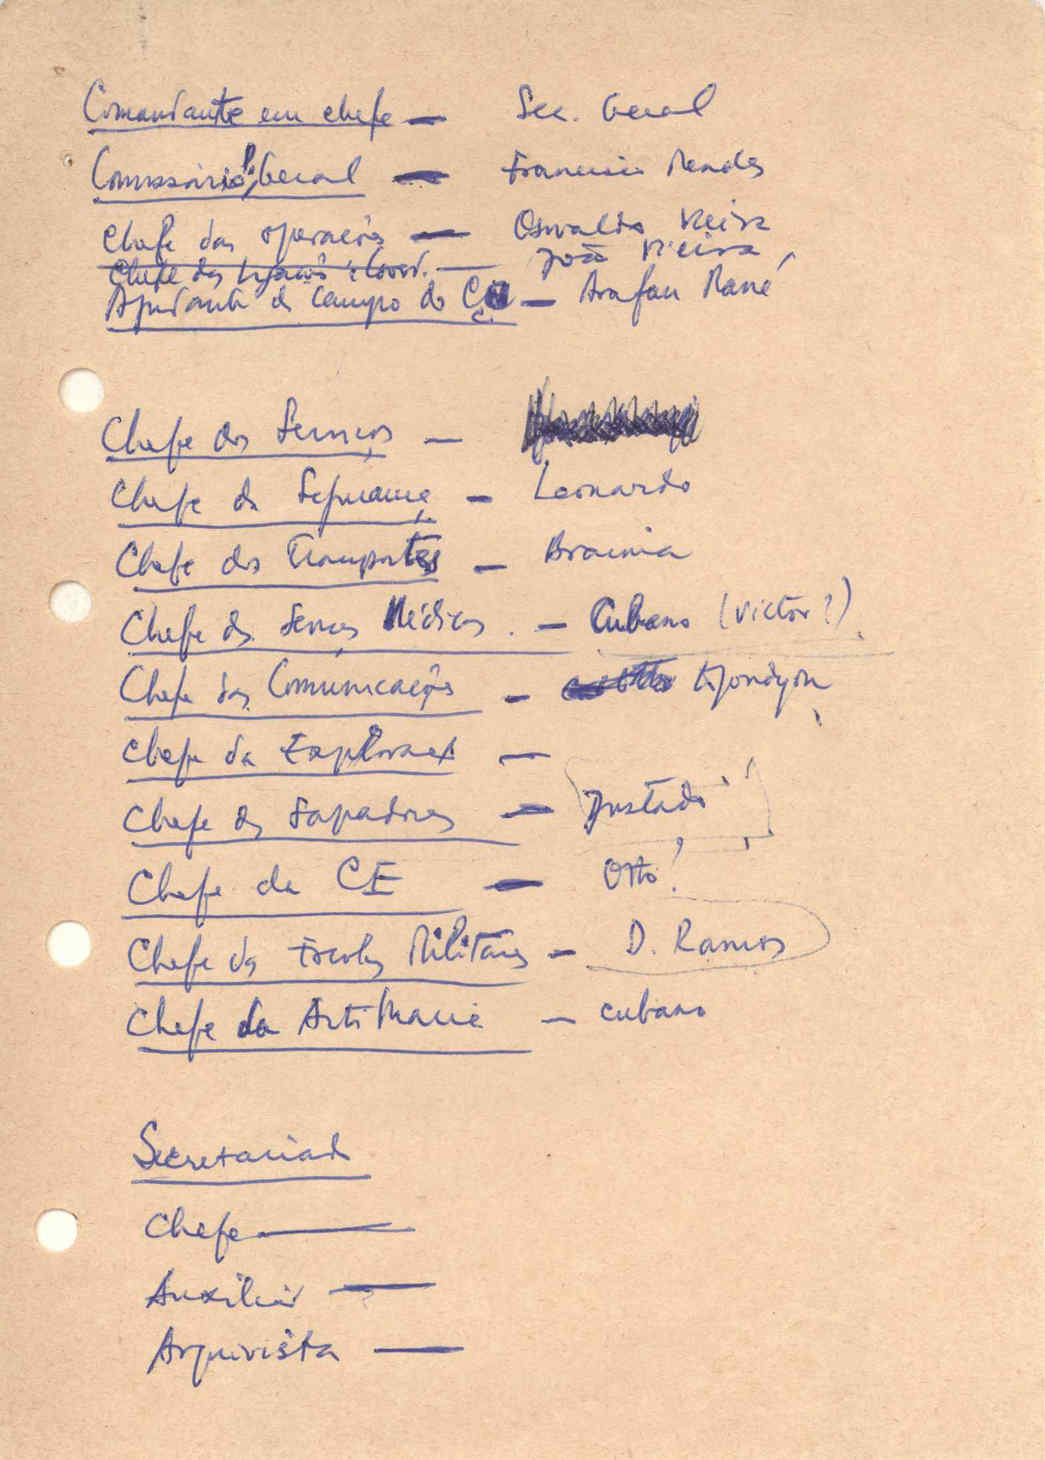 Comandante em chefe — Sec. Geral
Comissário P. Geral — Francisco Mendes
Chefe das operações — Osvaldo Vieira
Chefe das Ligações e Coord. — João Vieira
Ajudante de Campo do C. C. — Arafan Mané
Chefe dos Serviços —
Chefe da Segurança — Leonardo
Chefe dos Transportes — Braima
Chefe dos Serviços Médicos. — Cubano (Victor?)
Chefe das Comunicações — Djondjon
Chefe da Exploração —
Chefe dos Sapadores — Justado
Chefe da CE — Otto?
Chefe das Escolas Militares — D. Ramos
Chefe da Artilharia — cubano
Secretariado
Chefe —
Auxiliar —
Arquivista —